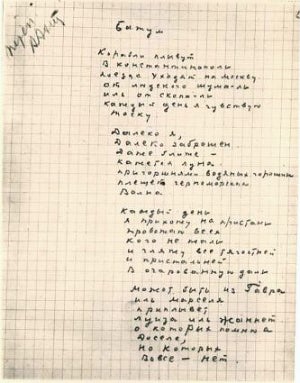 Батум
Корабли плывут
В константинополь
поезда уходят на москву
от людского шума-ль
иль от скопа-ль
каждый день я чувствую
тоску
Далеко я,
Далеко заброшен
Даже ближе –
кажется луна.
пригоршнями водяных горошин
плещет черноморская
Волна.
Каждый день
я прихожу на пристань
провожаю всех
кого не жаль
и гляжу все тягостней
и пристальней
В очарованную даль
может быть из Гавра
иль марселя
приплывет
Луиза иль Жаннет
о которых помню я
Доселе,
но которых
Вовсе – нет.